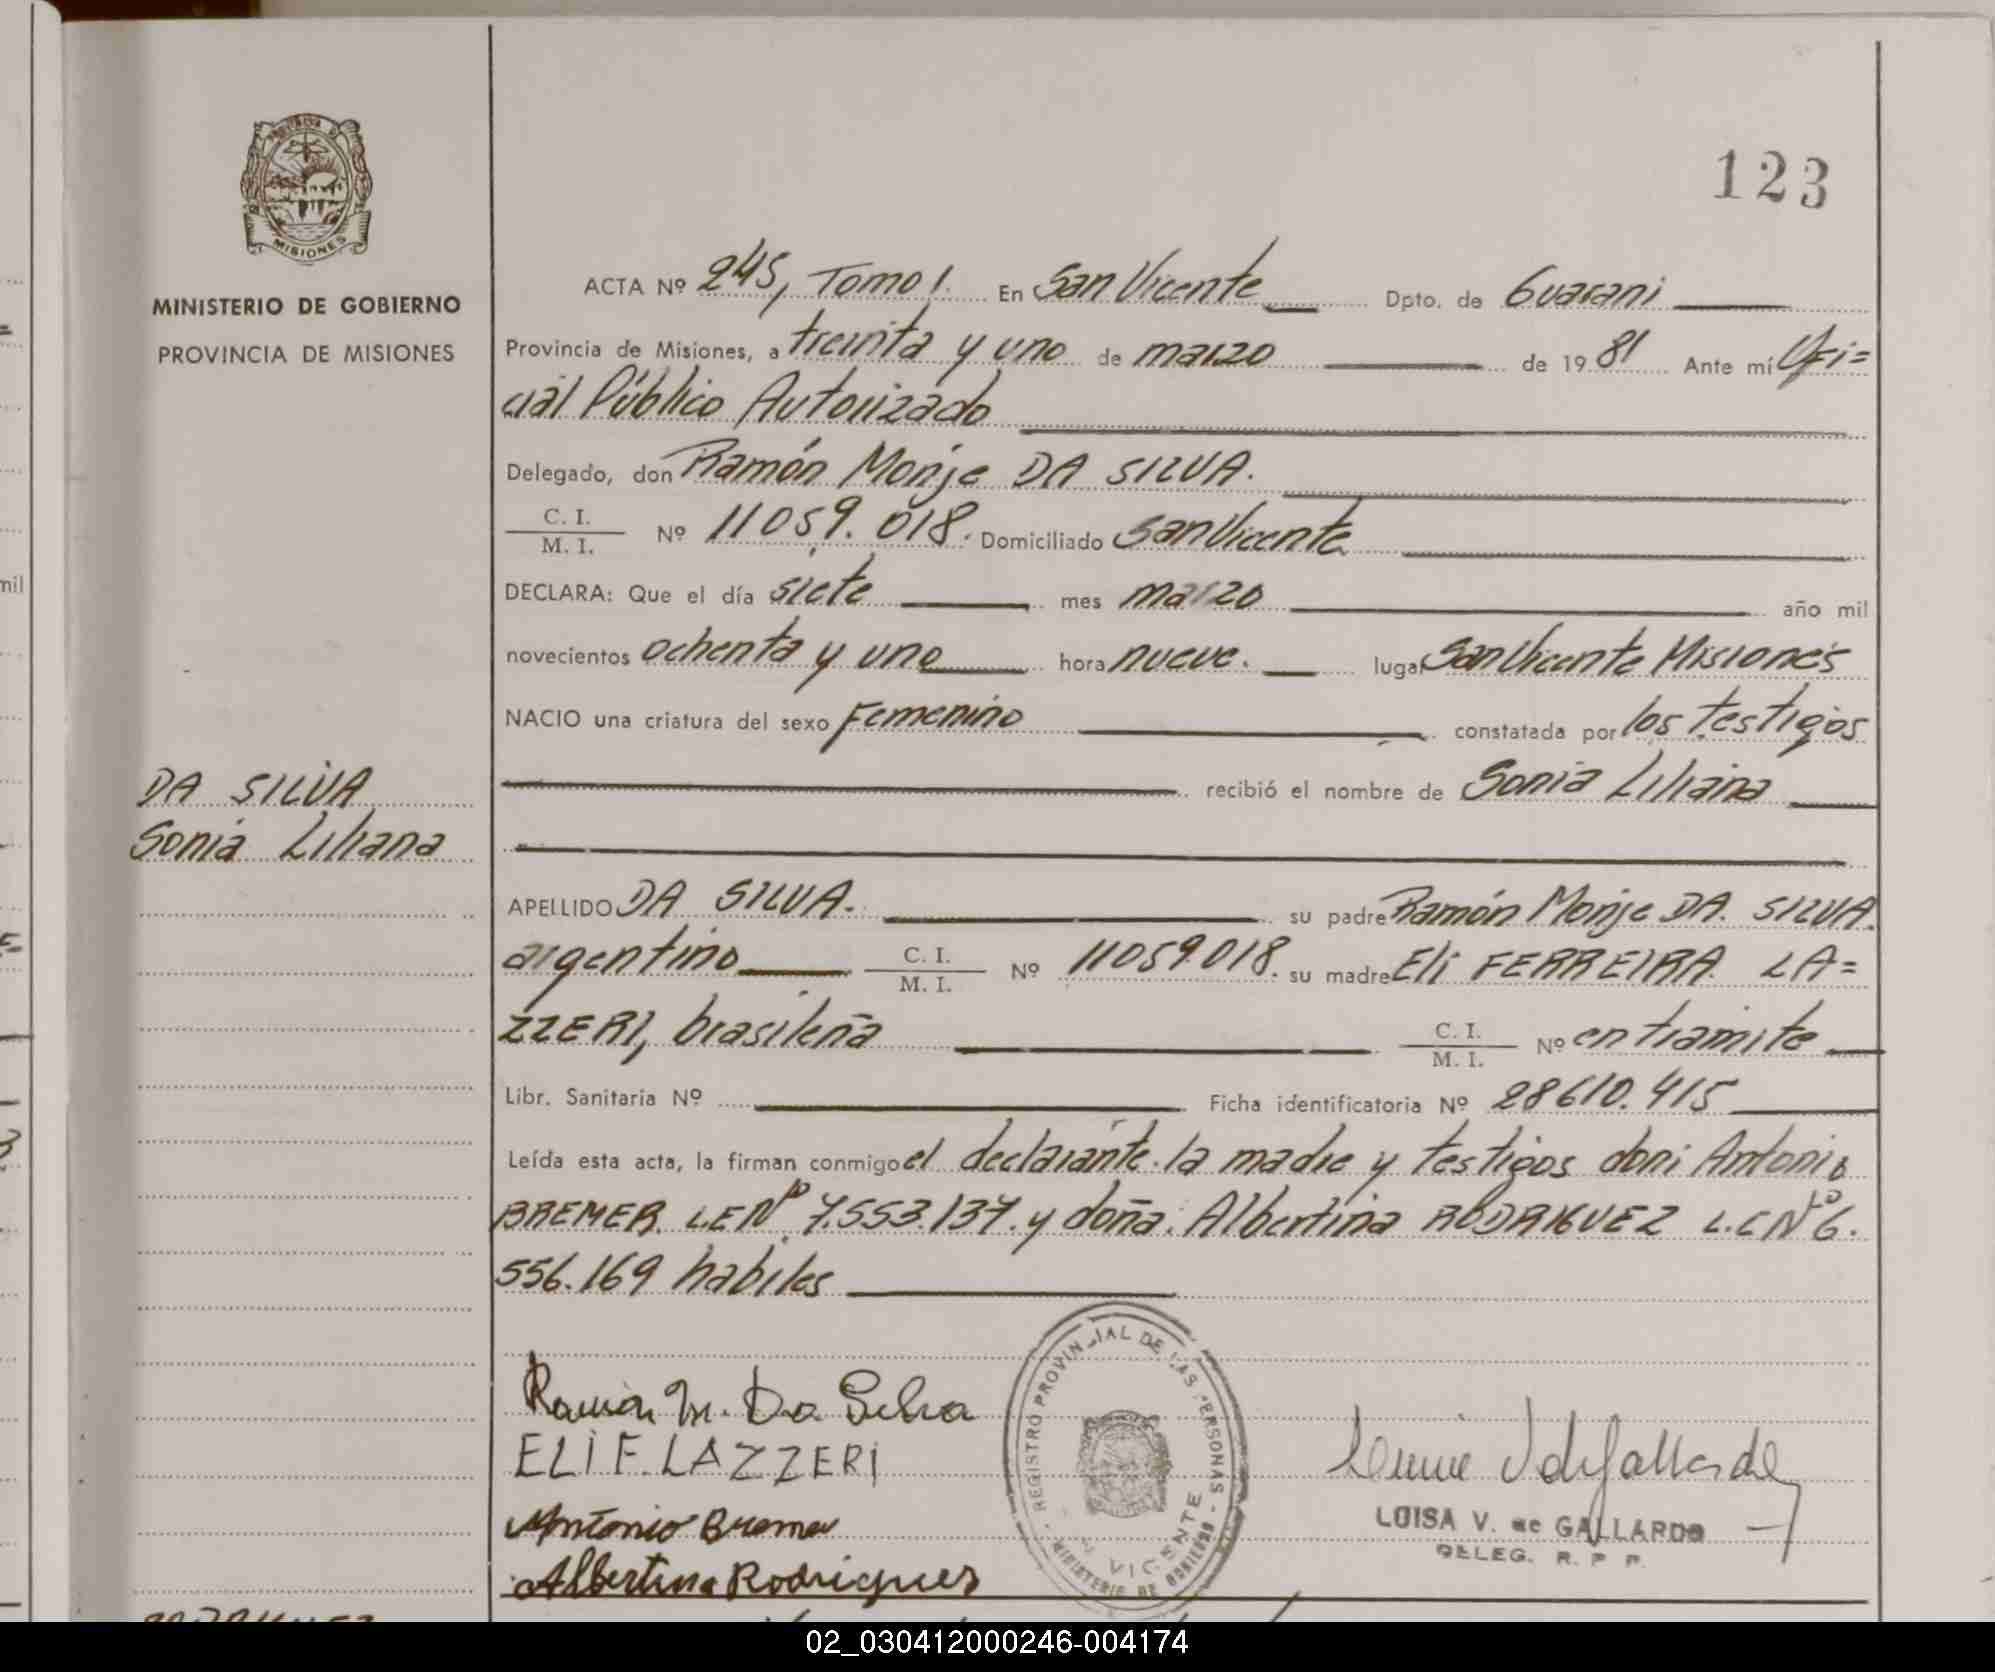 123
MISIONES
MINISTERIO DE GOBIERNO
PROVINCIA DE MISIONES
DA SILVA
Sonia Liliana
ACTA Nº 245, Tomo I. En San Vicente Dpto. de Guarani
Provincia de Misiones, a treinta y uno de marzo de 1981 Ante mí Ofi=
cial Público Autorizado
Delegado, don Ramón Monje DA SILVA.
C. I.
M. I. Nº 11059.018. Domiciliado San Vicente
DECLARA: Que el día siete mes marzo año mil
novecientos ochenta y uno hora nueve. lugar San Vicente Misiones
NACIO una criatura del sexo Femenino constatada por los testigos
recibió el nombre de Sonia Liliana
APELLIDO DA SILVA. su padre Ramón Monje DA SILVA.
argentino C. I.
M. I. Nº 11059.018. su madre Eli FERREIRA LA=
ZZERI, brasileña C. I.
M. I. Nº en tramite
Libr. Sanitaria Nº Ficha identificatoria Nº 28610.415
Leída esta acta, la firman conmigo el declarante. la madre y testigos don Antonio
BREMER L.E Nº 7.553.137. y doña Albertina RODRIGUEZ L.C Nº 6.
556.169 habiles
Ramón M. Da Silva
ELI F. LAZZERI
Antonio Bremer
Albertina Rodrigues
REGISTRO PROVINCIAL DE LAS PERSONAS
MINISTERIO DE GOBIERNO
VICENTE
LUISA V. de GALLARDO
DELEG. R. P. P.
02_030412000246-004174